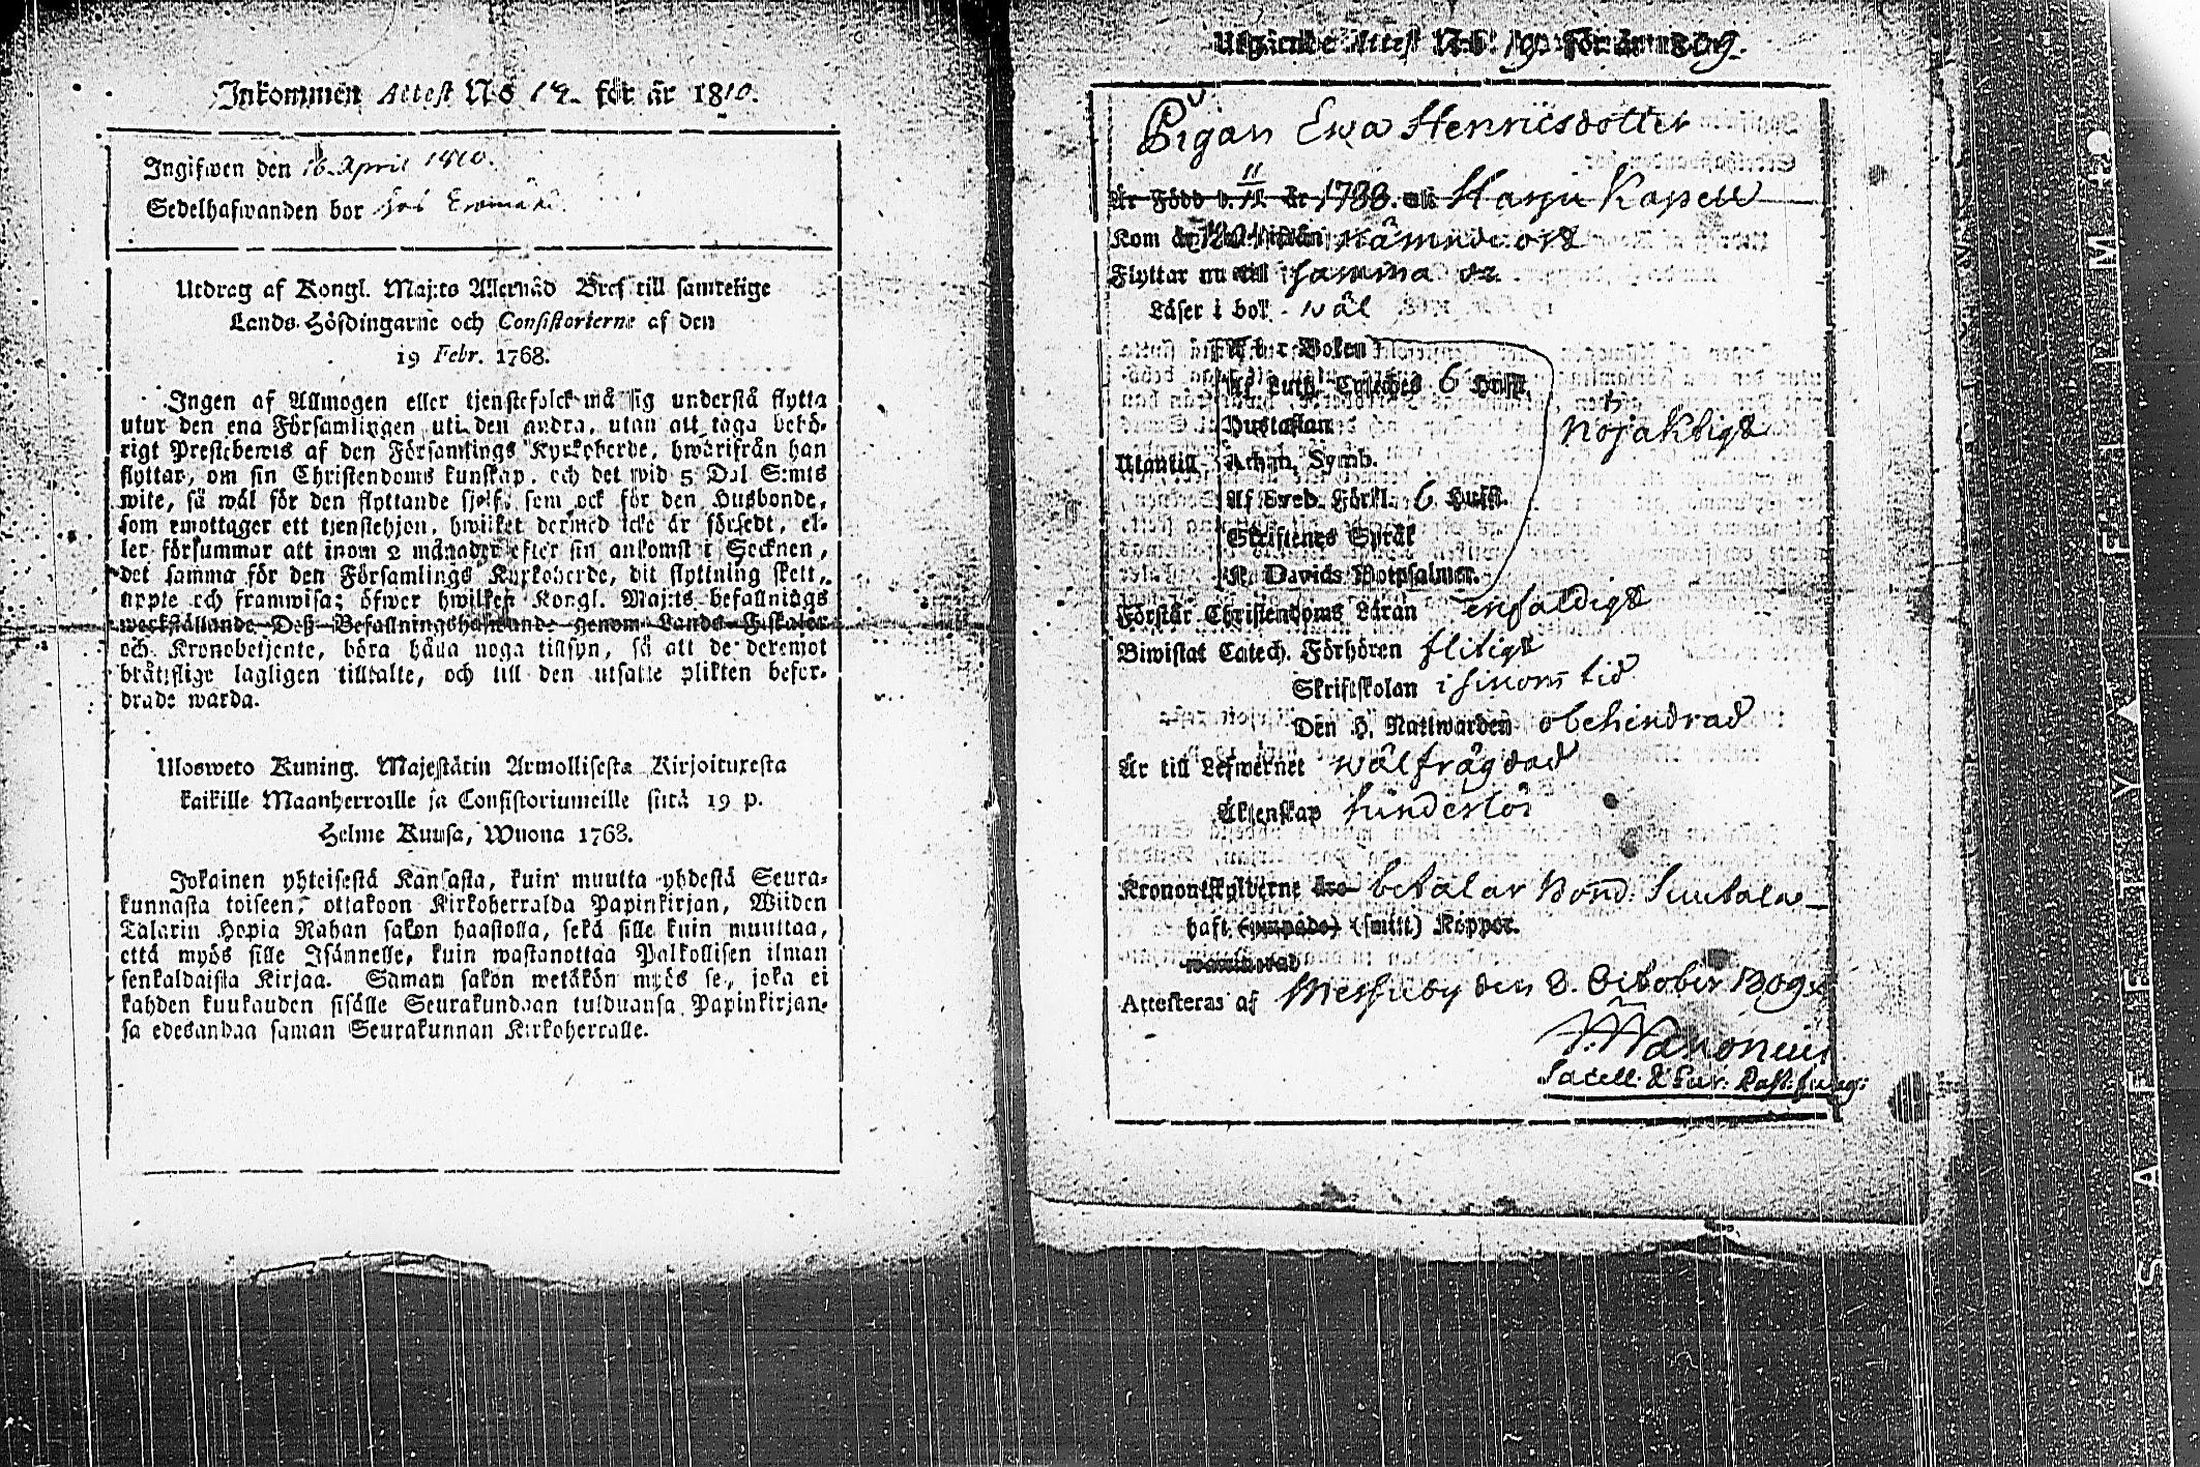 Inkommen Attest No 14. för år 1810.
Ingifwen den 16. April 1810.
Sedelhafwanden bor hos
Utdrag af Kongl. Maj:ts Allernåd Bref till samtelige
Lands-Höfdingarne och Consistorierne af den
19 Febr. 1768.
Ingen af Allmogen eller tjenstefolck må sig understå flytta
utur den ena Församlingen uti den andra, utan att taga behö-
rigt Prestebewis af den Församlings Kyrkoherde, hwarifrån han
flyttar, om sin Christendoms kunskap, och det wid 5 Dal. S:mts
wite, så wäl för den flyttande sjelf, som ock för den Husbonde,
som emottager ett tjenstehjon, hwilket dermed icke är försedt, el-
ler försummar att inom 2 månader efter sin ankomst i Socknen,
det samma för den Församlings Kyrkoherde, dit flyttning skett,
uppte och framwisa; öfwer hwilken Kongl. Maj:ts befallnings
werkställande Deß Befallningshafwande genom Lands-Fiskaler
och Kronobetjente, böra hålla noga tillsyn, så att de deremot
bråtslige lagligen tilltalte, och till den utsatte plikten befor-
drade warda.
Ulosweto Kuning. Majestätin Armollisesta Kirjoituxesta
kaikille Maanherroille ja Consistoriumeille siitä 19 p.
Helme Kuusa, Wuona 1768.
Jokainen yhteisestä Kansasta, kuin muutta yhdestä Seura-
kunnasta toiseen, ottakoon Kirkoherralda Papinkirjan, Wiiden
Talarin Hopia Rahan sakon haastolla, sekä sille kuin muuttaa,
että myös sille Isännelle, kuin wastanottaa Palkollisen ilman
senkaldaisita Kirjaa. Saman sakon wetäkön myös se, joka ei
kahden kuukauden sisälle Seurakundaan tulduansa Papinkirjan-
sa edesandaa saman Seurakunnan Kirkoherralle.
Utgående Attest N:o 190 för år 1809.
Pigan Ewa Henricsdotter
Är Född d. 11 år 1788. uti Harju Kapell
Kom år från nämnde ort
Flyttar nu till samma
Läser i bok wäl
A b c Boken
Af Luth. Cateches 6 Hufst.
Hustaflan
Utantill Athan. Symb.
Af Sveb. Förkl. 6 Hufst.
Skriftenes Språk
K. Davids Botpsalmer.
nöjaktigt
Förstår Christendoms Läran enfaldigt
Biwistat Catech. Förhören flitigt
Skriftskolan i sinom tid
Den H. Nattwarden obehindrad
Är till Lefwernet wälfrägdad
Äktenskap hinderlös
Kronoutskylderne betalar Bond.
haft (ympade) (smitt) Koppor.
Attesteras af Messuby den 8. October 1809.